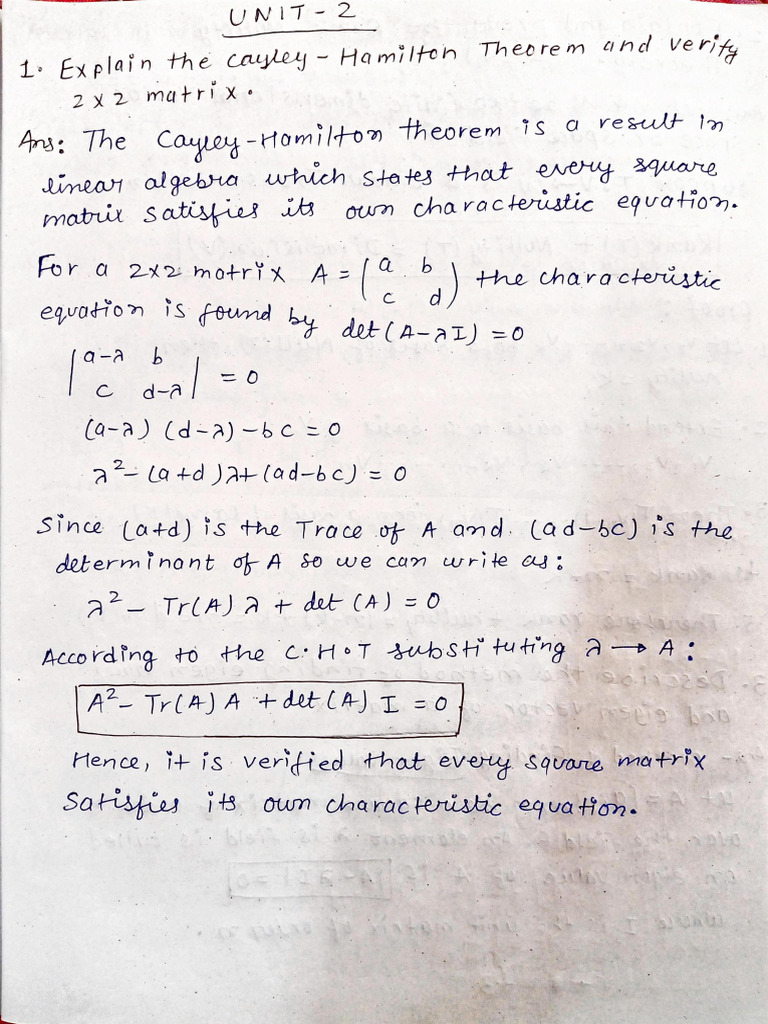 UNIT-2
1. Explain the Cayley-Hamilton Theorem and verify
2x2 matrix.
Ans: The Cayley-Hamilton theorem is a result in
linear algebra which states that every square
matrix satisfies its own characteristic equation.
For a 2x2 matrix A = (a b the characteristic
c d)
equation is found by det(A-λI) = 0
|a-λ b
c d-λ| = 0
(a-λ) (d-λ) - bc = 0
λ² - (a+d)λ + (ad-bc) = 0
Since (a+d) is the Trace of A and (ad-bc) is the
determinant of A so we can write as:
λ² - Tr(A) λ + det (A) = 0
According to the C.H.T substituting λ → A:
A² - Tr(A) A + det(A) I = 0
Hence, it is verified that every square matrix
Satisfies its own characteristic equation.